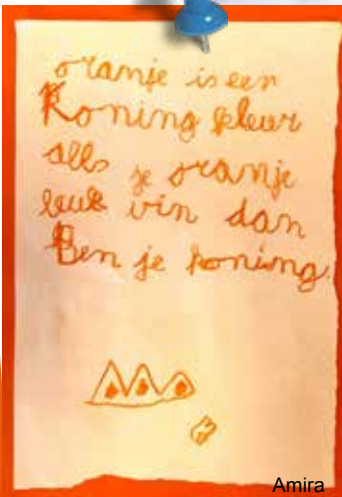 oranje is een
Koning kleur
alls je oranje
leuk vin dan
Ben je koning
Amira